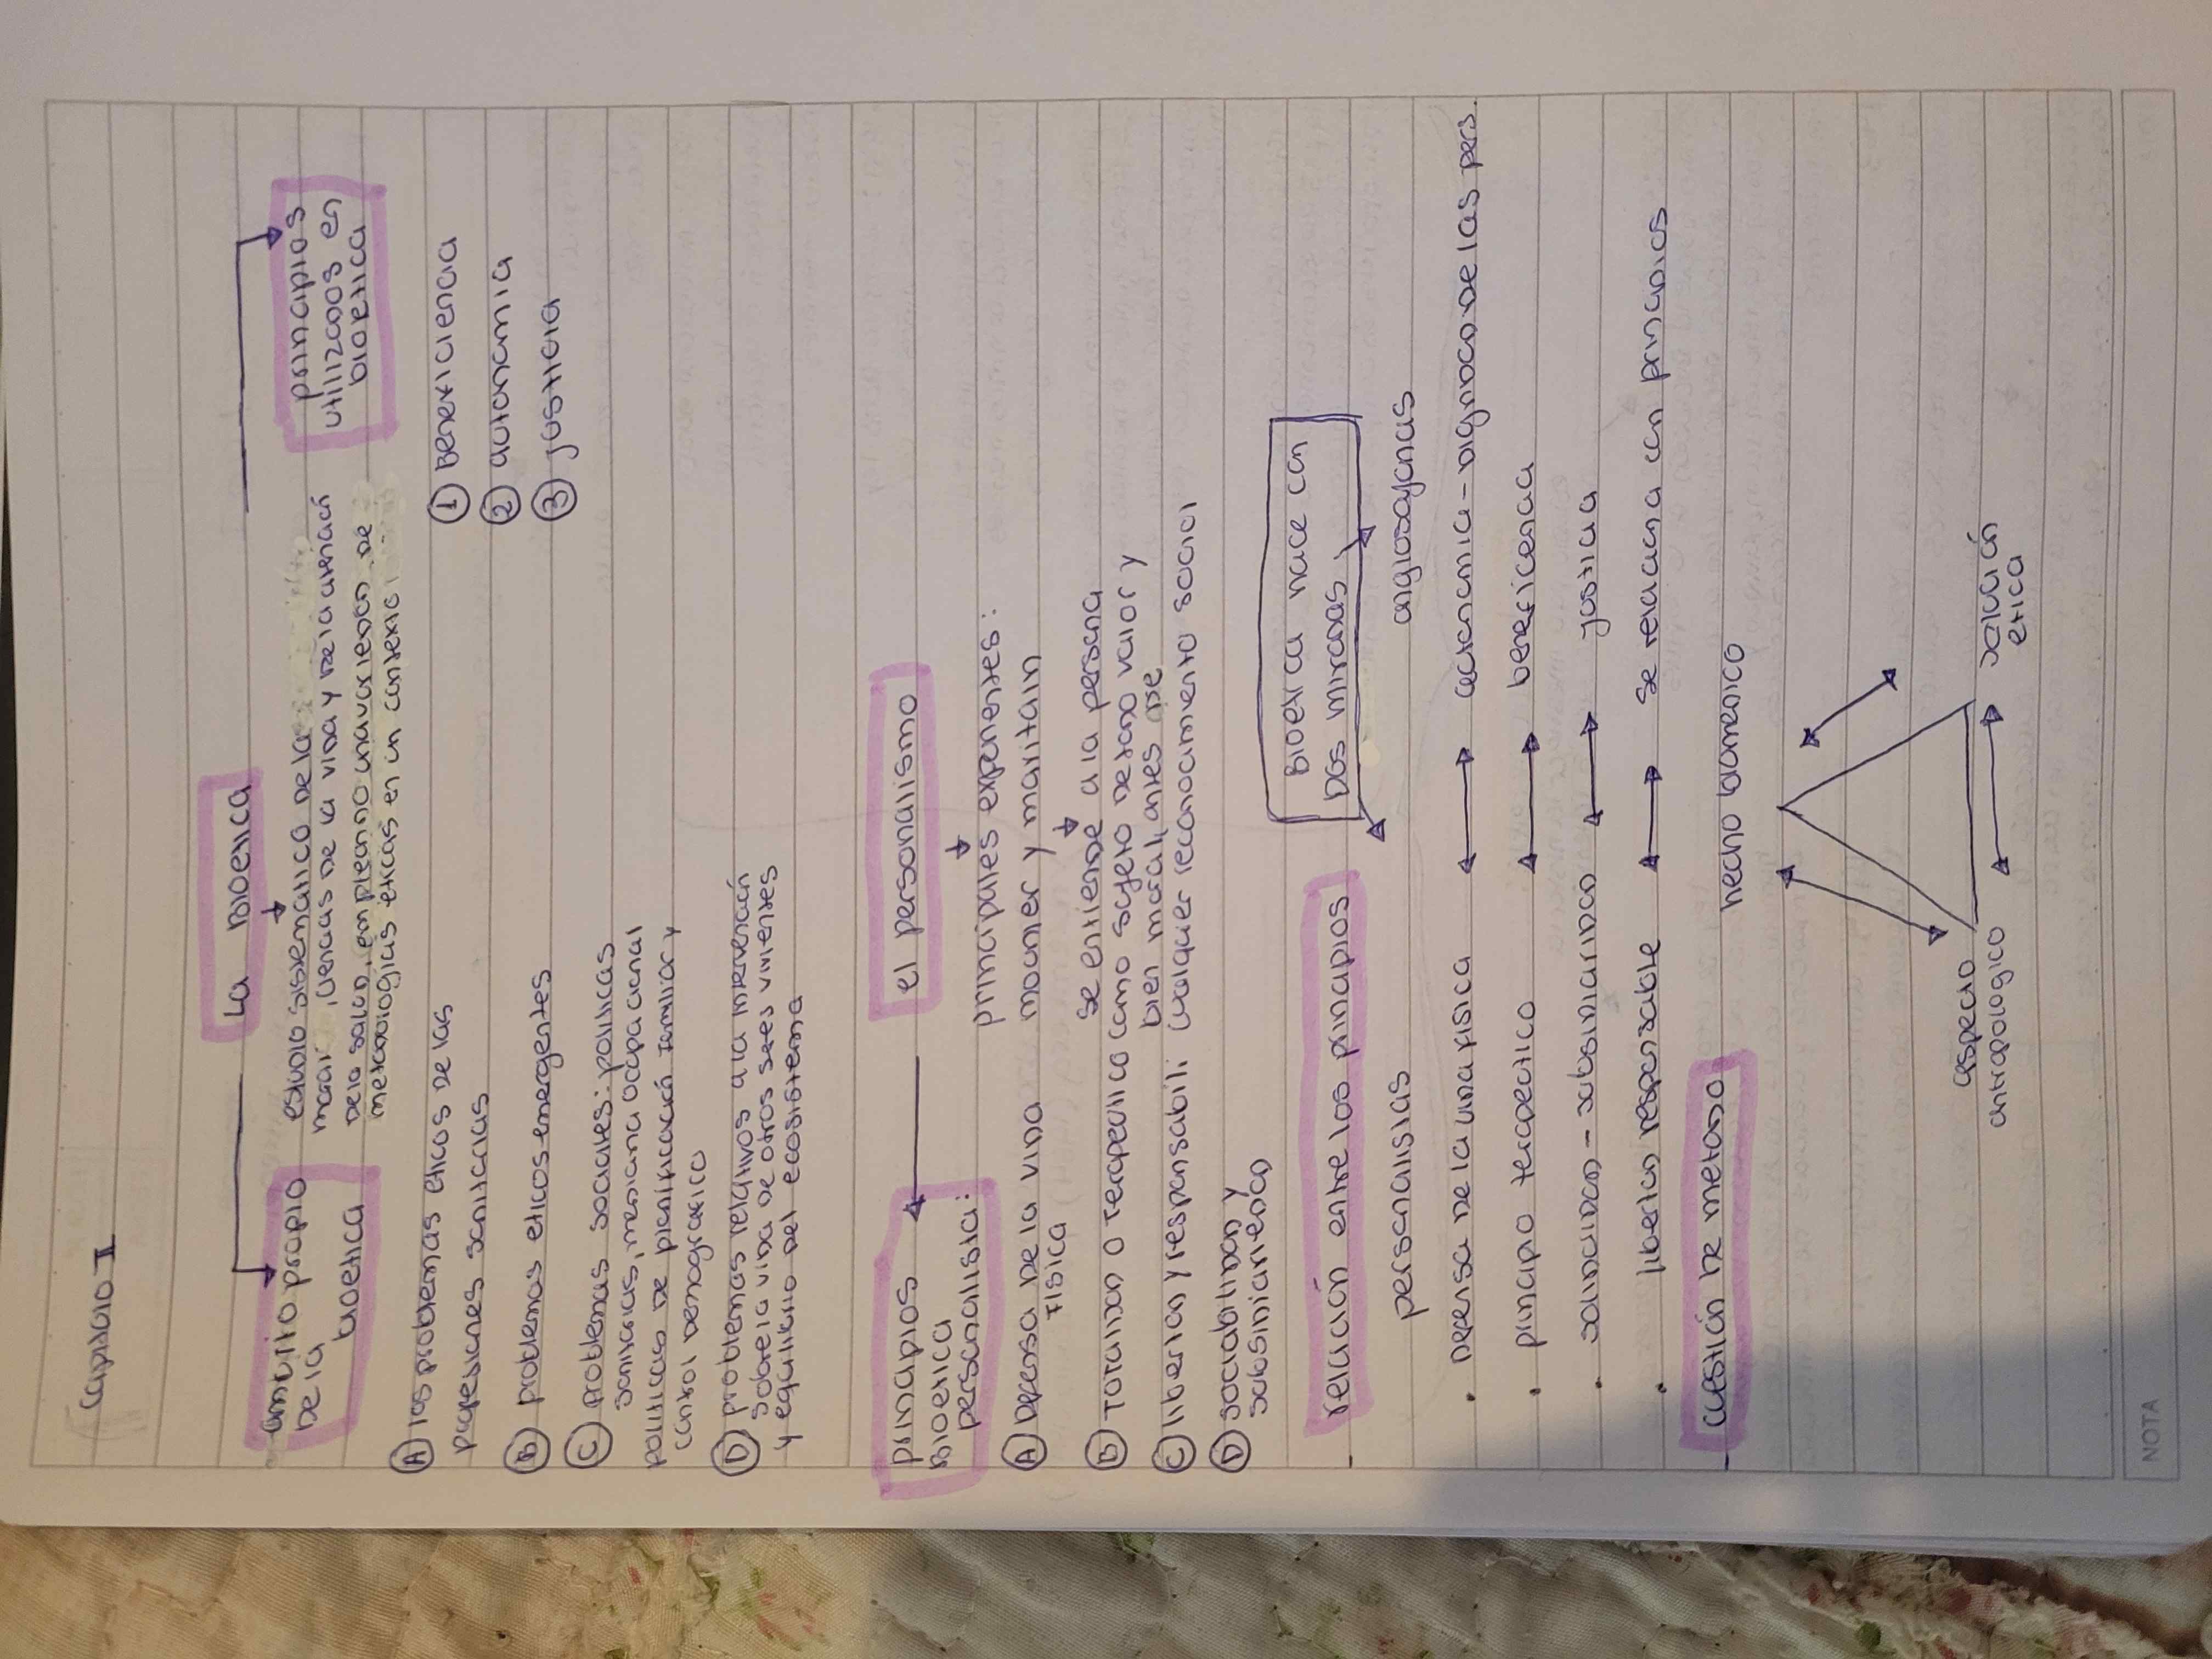 Capitulo II
La Bioetica
ambito propio
de la
bioetica
estudio sistematico de la
moral, ciencias de la vida y de la atención
de la salud, empleando una variedad de
metodologias eticas en un contexto
principios
utilizados en
bioetica
A los problemas eticos de las
profesiones sanitarias
B problemas eticos emergentes
C problemas sociales: politicas
sanitarias, medicina ocupacional
politicas de planificación familiar y
control demografico
D problemas relativos a la intervención
sobre la vida de otros seres vivientes
y equilibrio del ecosistema
1 Beneficiencia
2 autonomia
3 justicia
principios
Bioetica
personalista:
el personalismo
principales exponentes:
mounier y maritain
se entiende a la persona
como sujeto de tano valor y
bien moral, antes de
cualquier reconocimiento social
A Defensa de la vida
fisica
B Totalidad o Terapeutico
C libertad y responsabili
D sociabilidad y
subsidiariedad
relación entre los principios
Bioetica nace con
Dos miradas
personalistas
anglosajonas
• Defensa de la vida fisica ↔ autonomia - Dignidad de las pers.
• principio terapeutico ↔ beneficencia
• solidaridad - subsidiaridad ↔ justicia
• libertad responsable ↔ se relaciona con principios
cuestión de metodo
hecho biomedico
aspecto
antropologico
solución
etica
NOTA